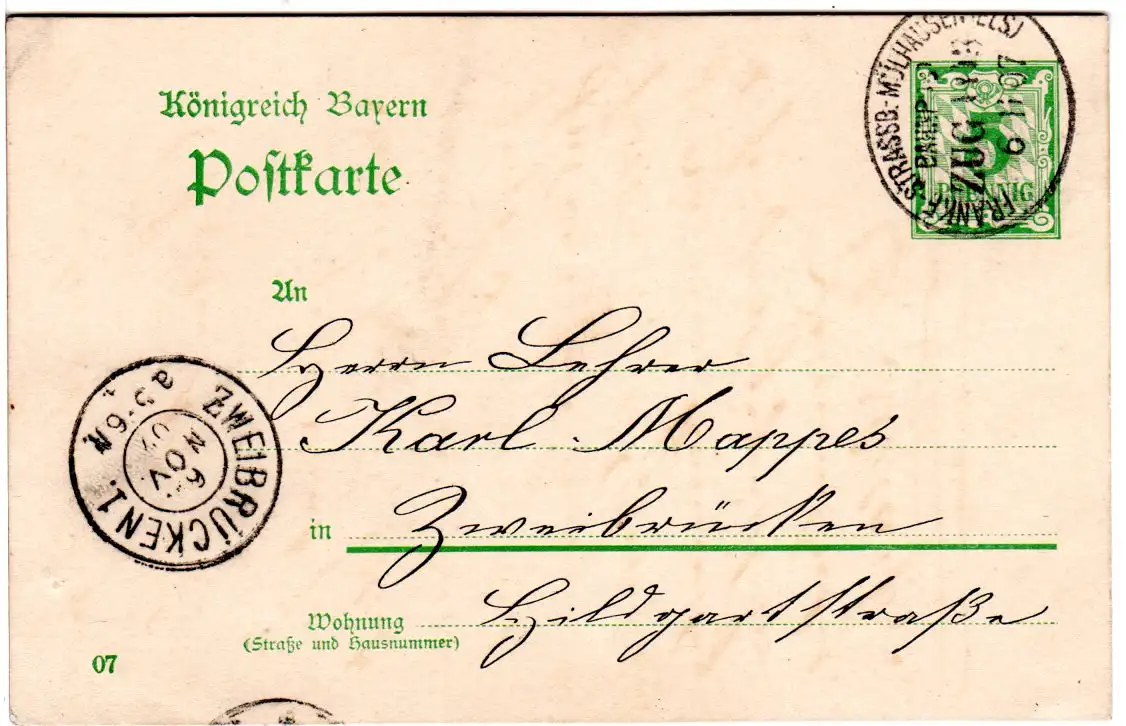 Königreich Bayern
Postkarte
STRASSB.-MÜLHAUSEN (ELS)
BAHNP.
ZUG
6 11 07
5
PFENNIG
An
Herrn Lehrer
Karl Mappes
ZWEIBRÜCKEN 1.
NOV.
in Zweibrücken
Wohnung Hildgartstraße
(Straße und Hausnummer)
07